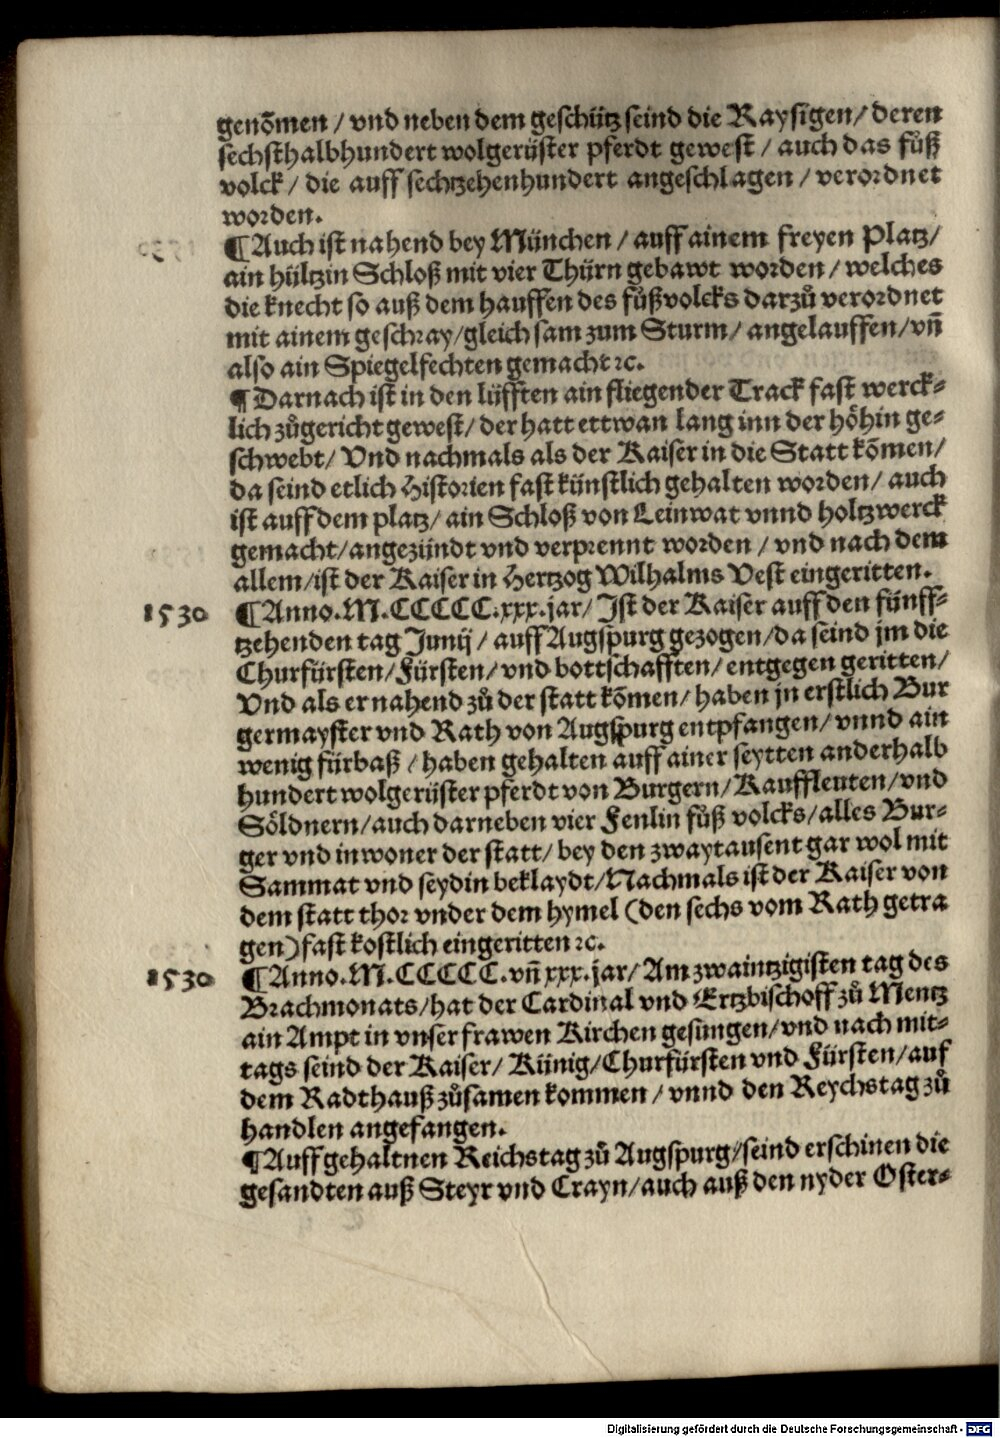 genõmen / vnd neben dem geschütz seind die Raysigen / deren
sechsthalbhundert wolgerüster pferdt gewest / auch das fůß
volck / die auff sechtzehenhundert angeschlagen / verordnet
worden.
¶ Auch ist nahend bey München / auff ainem freyen Platz /
ain hültzin Schloß mit vier Thürn gebawt worden / welches
die knecht so auß dem hauffen des fůßvolcks darzů verordnet
mit ainem geschray / gleich sam zum Sturm / angelauffen / vñ
also ain Spiegelfechten gemacht ꝛc.
¶ Darnach ist in den lüfften ain fliegender Track fast werck-
lich zůgericht gewest / der hatt ettwan lang inn der höhin ge-
schwebt / Vnd nachmals als der Kaiser in die Statt kõmen /
da seind etlich Historien fast künstlich gehalten worden / auch
ist auff dem platz / ain Schloß von Leinwat vnnd holtzwerck
gemacht / angezündt vnd verprennt worden / vnd nach dem
allem / ist der Kaiser in Hertzog Wilhalms Vest eingeritten.
1530 ¶ Anno. M. CCCCC. xxx. jar / Ist der Kaiser auff den fünff-
tzehenden tag Junij / auff Augspurg gezogen / da seind jm die
Churfürsten / Fürsten / vnd bottschafften / entgegen geritten /
Vnd als er nahend zů der statt kõmen / haben jn erstlich Bur
germayster vnd Rath von Augspurg entpfangen / vnnd ain
wenig fürbaß / haben gehalten auff ainer seytten anderhalb
hundert wolgerüster pferdt von Burgern / Kauffleuten / vnd
Söldnern / auch darneben vier Fenlin fůß volcks / alles Bur-
ger vnd inwoner der statt / bey den zwaytausent gar wol mit
Sammat vnd seydin beklaydt / Nachmals ist der Kaiser von
dem statt thor vnder dem hymel (den sechs vom Rath getra
gen) fast kostlich eingeritten ꝛc.
1530 ¶ Anno. M. CCCCC. vñ xxx. jar / Am zwaintzigisten tag des
Brachmonats / hat der Cardinal vnd Ertzbischoff zů Mentz
ain Ampt in vnser frawen Kirchen gesungen / vnd nach mit-
tags seind der Kaiser / Künig / Churfürsten vnd Fürsten / auf
dem Radthauß zůsamen kommen / vnnd den Reychstag zů
handlen angefangen.
¶ Auff gehaltnen Reichstag zů Augspurg / seind erschinen die
gesandten auß Steyr vnd Crayn / auch auß den nyder Oster-
Digitalisierung gefördert durch die Deutsche Forschungsgemeinschaft - DFG